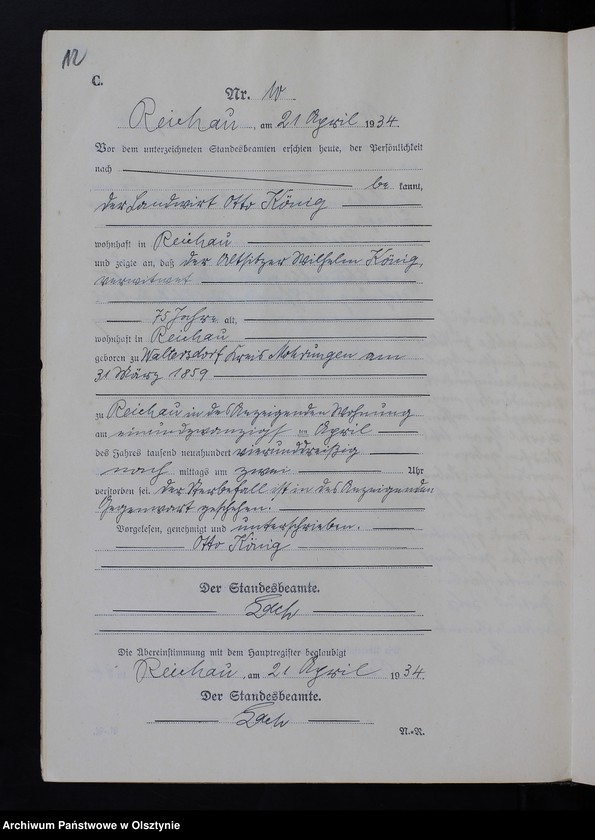 12
C.
Nr. 10
Reichau, am 21 April 1934.
Vor dem unterzeichneten Standesbeamten erschien heute, der Persönlichkeit
nach
be kannt,
der Landwirt Otto König
wohnhaft in Reichau
und zeigte an, daß der Altsitzer Wilhelm König,
verwitwet
75 Jahre alt,
wohnhaft in Reichau
geboren zu Waltersdorf Kreis Mohrungen am
31 März 1859
zu Reichau in des Anzeigenden Wohnung
am einundzwanzigst en April
des Jahres tausend neunhundert vierunddreißig
nach mittags um zwei Uhr
verstorben sei. Der Sterbefall ist in des Anzeigenden
Gegenwart geschehen.
Vorgelesen, genehmigt und unterschrieben.
Otto König
Der Standesbeamte.
Die Übereinstimmung mit dem Hauptregister beglaubigt
Reichau, am 21 April 1934.
Der Standesbeamte.
N.-R.
Archiwum Państwowe w Olsztynie